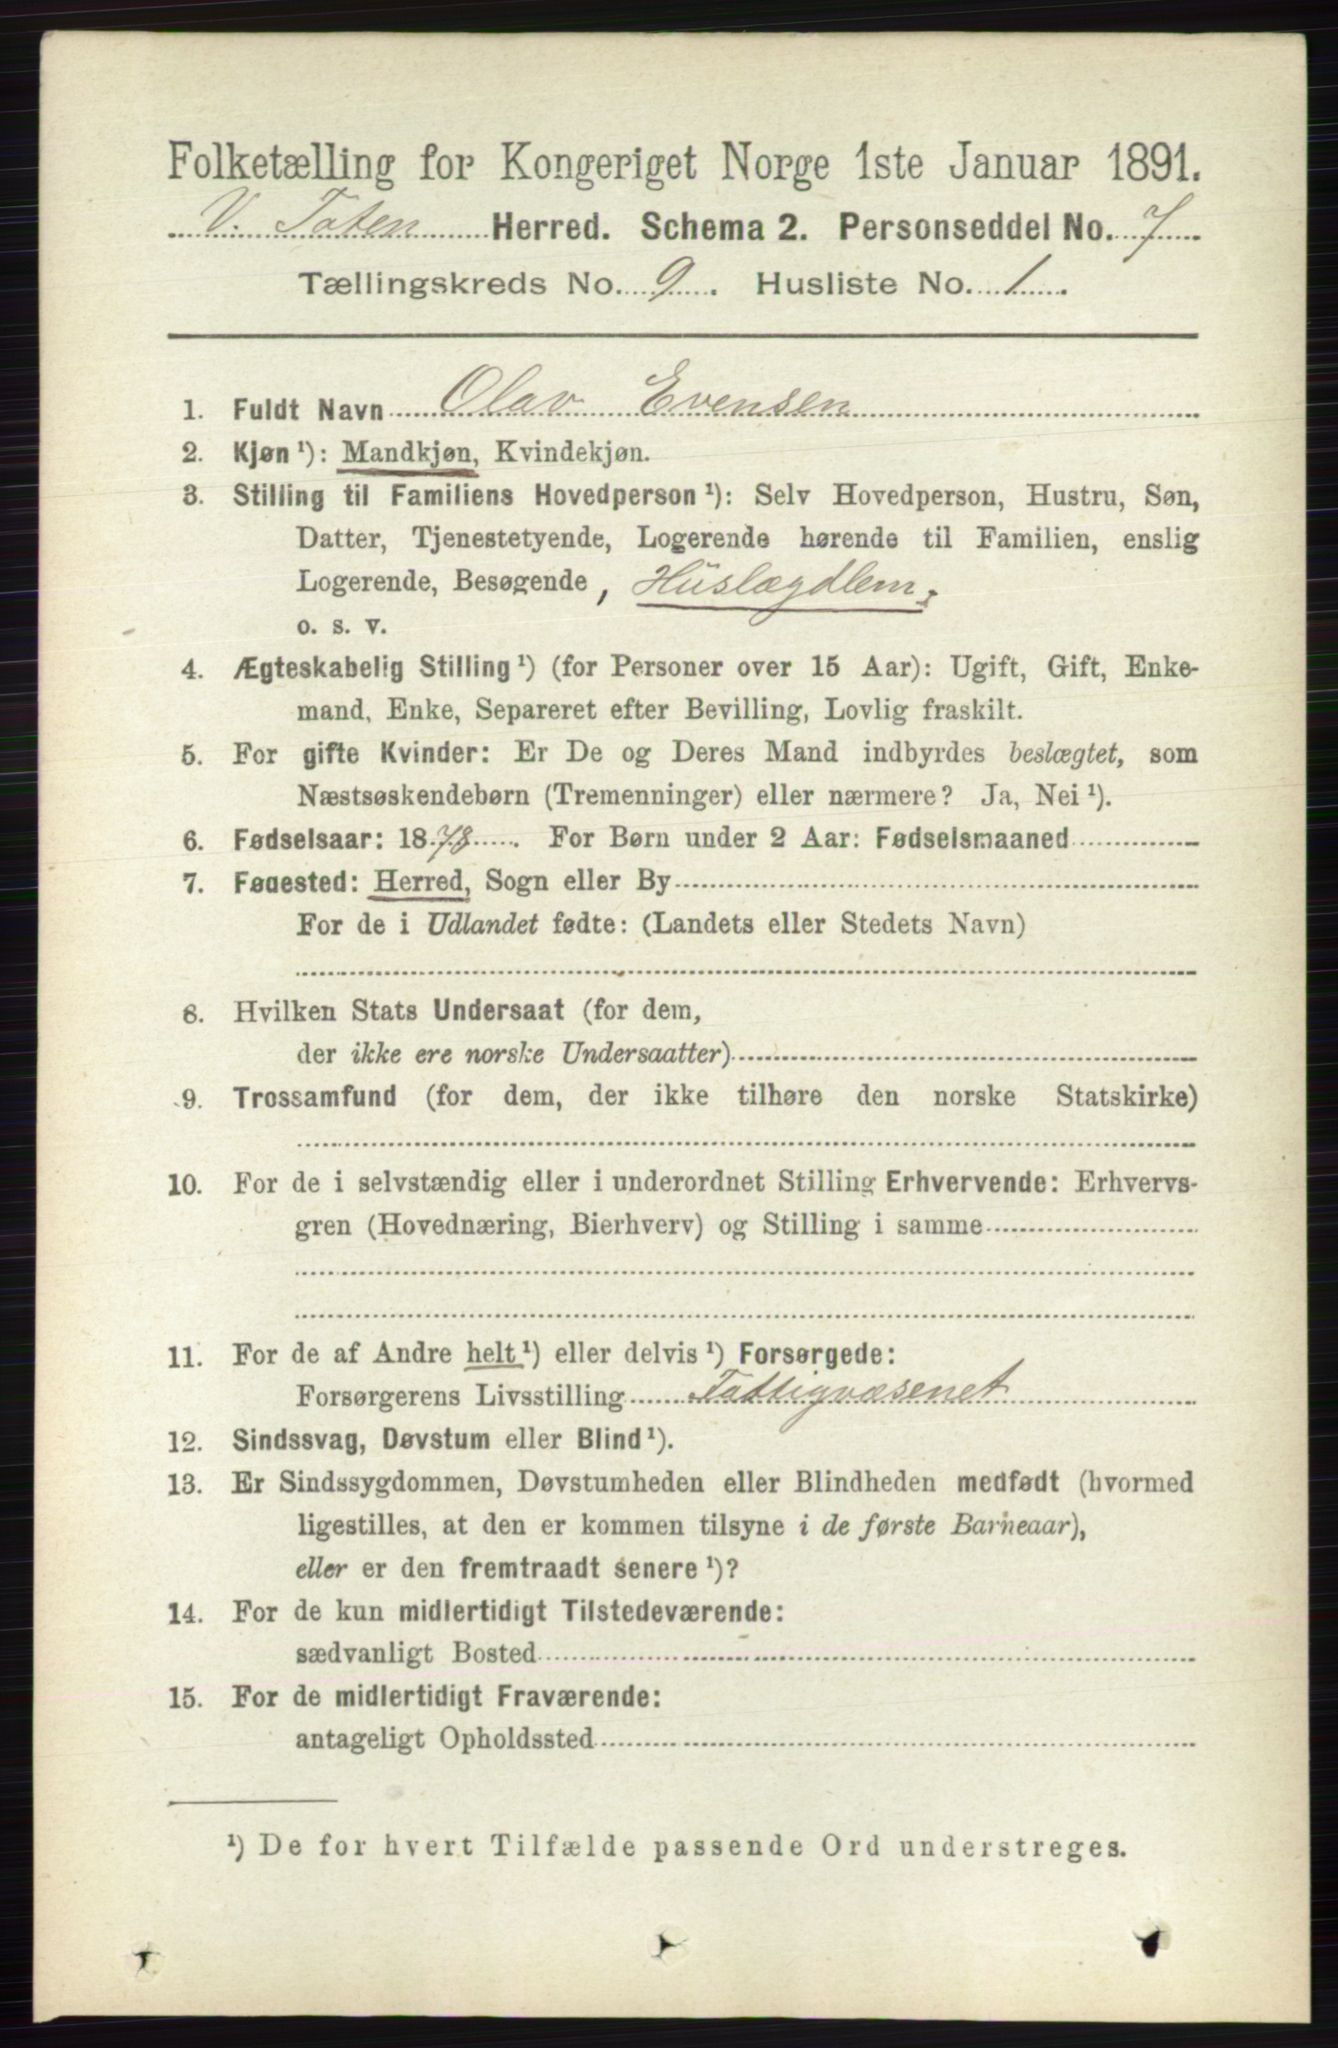 Folketælling for Kongeriget Norge 1ste Januar 1891.
V. Toten Herred. Schema 2. Personseddel No. 7
Tællingskreds No. 9. Husliste No. 1.
1. Fuldt Navn Olav Evensen
2. Kjøn ¹): Mandkjøn, Kvindekjøn.
3. Stilling til Familiens Hovedperson ¹): Selv Hovedperson, Hustru, Søn,
Datter, Tjenestetyende, Logerende hørende til Familien, enslig
Logerende, Besøgende, Huslægdlem.
o. s. v.
4. Ægteskabelig Stilling ¹) (for Personer over 15 Aar): Ugift, Gift, Enke-
mand, Enke, Separeret efter Bevilling, Lovlig fraskilt.
5. For gifte Kvinder: Er De og Deres Mand indbyrdes beslægtet, som
Næstsøskendebørn (Tremenninger) eller nærmere? Ja, Nei ¹).
6. Fødselsaar: 1878. For Børn under 2 Aar: Fødselsmaaned
7. Fødested: Herred, Sogn eller By
For de i Udlandet fødte: (Landets eller Stedets Navn)
8. Hvilken Stats Undersaat (for dem,
der ikke ere norske Undersaatter)
9. Trossamfund (for dem, der ikke tilhøre den norske Statskirke)
10. For de i selvstændig eller i underordnet Stilling Erhvervende: Erhvervs-
gren (Hovednæring, Bierhverv) og Stilling i samme
11. For de af Andre helt ¹) eller delvis ¹) Forsørgede:
Forsørgerens Livsstilling Fattigvæsenet
12. Sindssvag, Døvstum eller Blind ¹).
13. Er Sindssygdommen, Døvstumheden eller Blindheden medfødt (hvormed
ligestilles, at den er kommen tilsyne i de første Barneaar),
eller er den fremtraadt senere ¹)?
14. For de kun midlertidigt Tilstedeværende:
sædvanligt Bosted
15. For de midlertidigt Fraværende:
antageligt Opholdssted
¹) De for hvert Tilfælde passende Ord understreges.